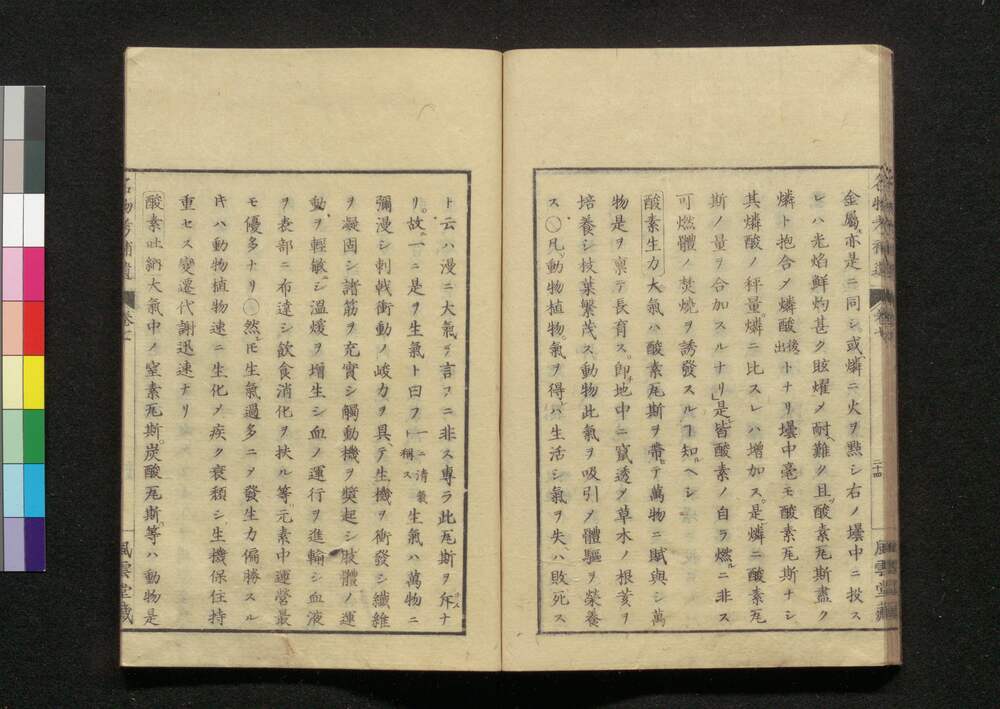 金屬亦是ニ同シ或燐ニ火ヲ點シ右ノ壜中ニ投ス
レハ光焰鮮灼甚ク眩耀メ耐難ク且酸素瓦斯盡ク
燐ト抱合メ燐酸後出トナリ壜中毫モ酸素瓦斯ナシ
其燐酸ノ秤量燐ニ比スレハ増加ス是燐ニ酸素瓦
斯ノ量ヲ合加スルナリ是皆酸素ノ自ラ燃ルニ非ス
可燃體ノ焚燒ヲ誘發スルヿ知ヘシ
酸素生力大氣ハ酸素瓦斯ヲ帶テ萬物ニ賦與シ萬
物是ヲ稟テ長育ス即地中ニ竄透メ草木ノ根荄ヲ
培養シ枝葉繁茂ス動物此氣ヲ吸引メ體軀ヲ榮養
ス凡ソ動物植物氣ヲ得レハ生活シ氣ヲ失ハ敗死ス
二十四
風雲堂藏
ト云ハ漫ニ大氣ヲ言フニ非ス專ラ此瓦斯ヲ斥ナ
リ故ニ一ニ是ヲ生氣ト曰フ一ニ清氣ト稱ス生氣ハ萬物ニ
彌漫シ刺戟衝動ノ峻力ヲ具テ生機ヲ衝發シ纖維
ヲ凝固シ諸筋ヲ充實シ觸動機ヲ奬起シ肢體ノ運
動ヲ輕敏ニシ溫煖ヲ增生シ血ノ運行ヲ進輸シ血液
ヲ表部ニ布達シ飮食消化ヲ扶ル等元素中運營最
モ優多ナリ然レ𪜈生氣過多ニメ發生力偏勝スル
𪜈ハ動物植物速ニ生化メ疾ク衰頽シ生機保住持
重セス變遷代謝迅速ナリ
酸素吐納大氣中ノ窒素瓦斯炭酸瓦斯等ハ動物是
名物考補遺
風雲堂藏